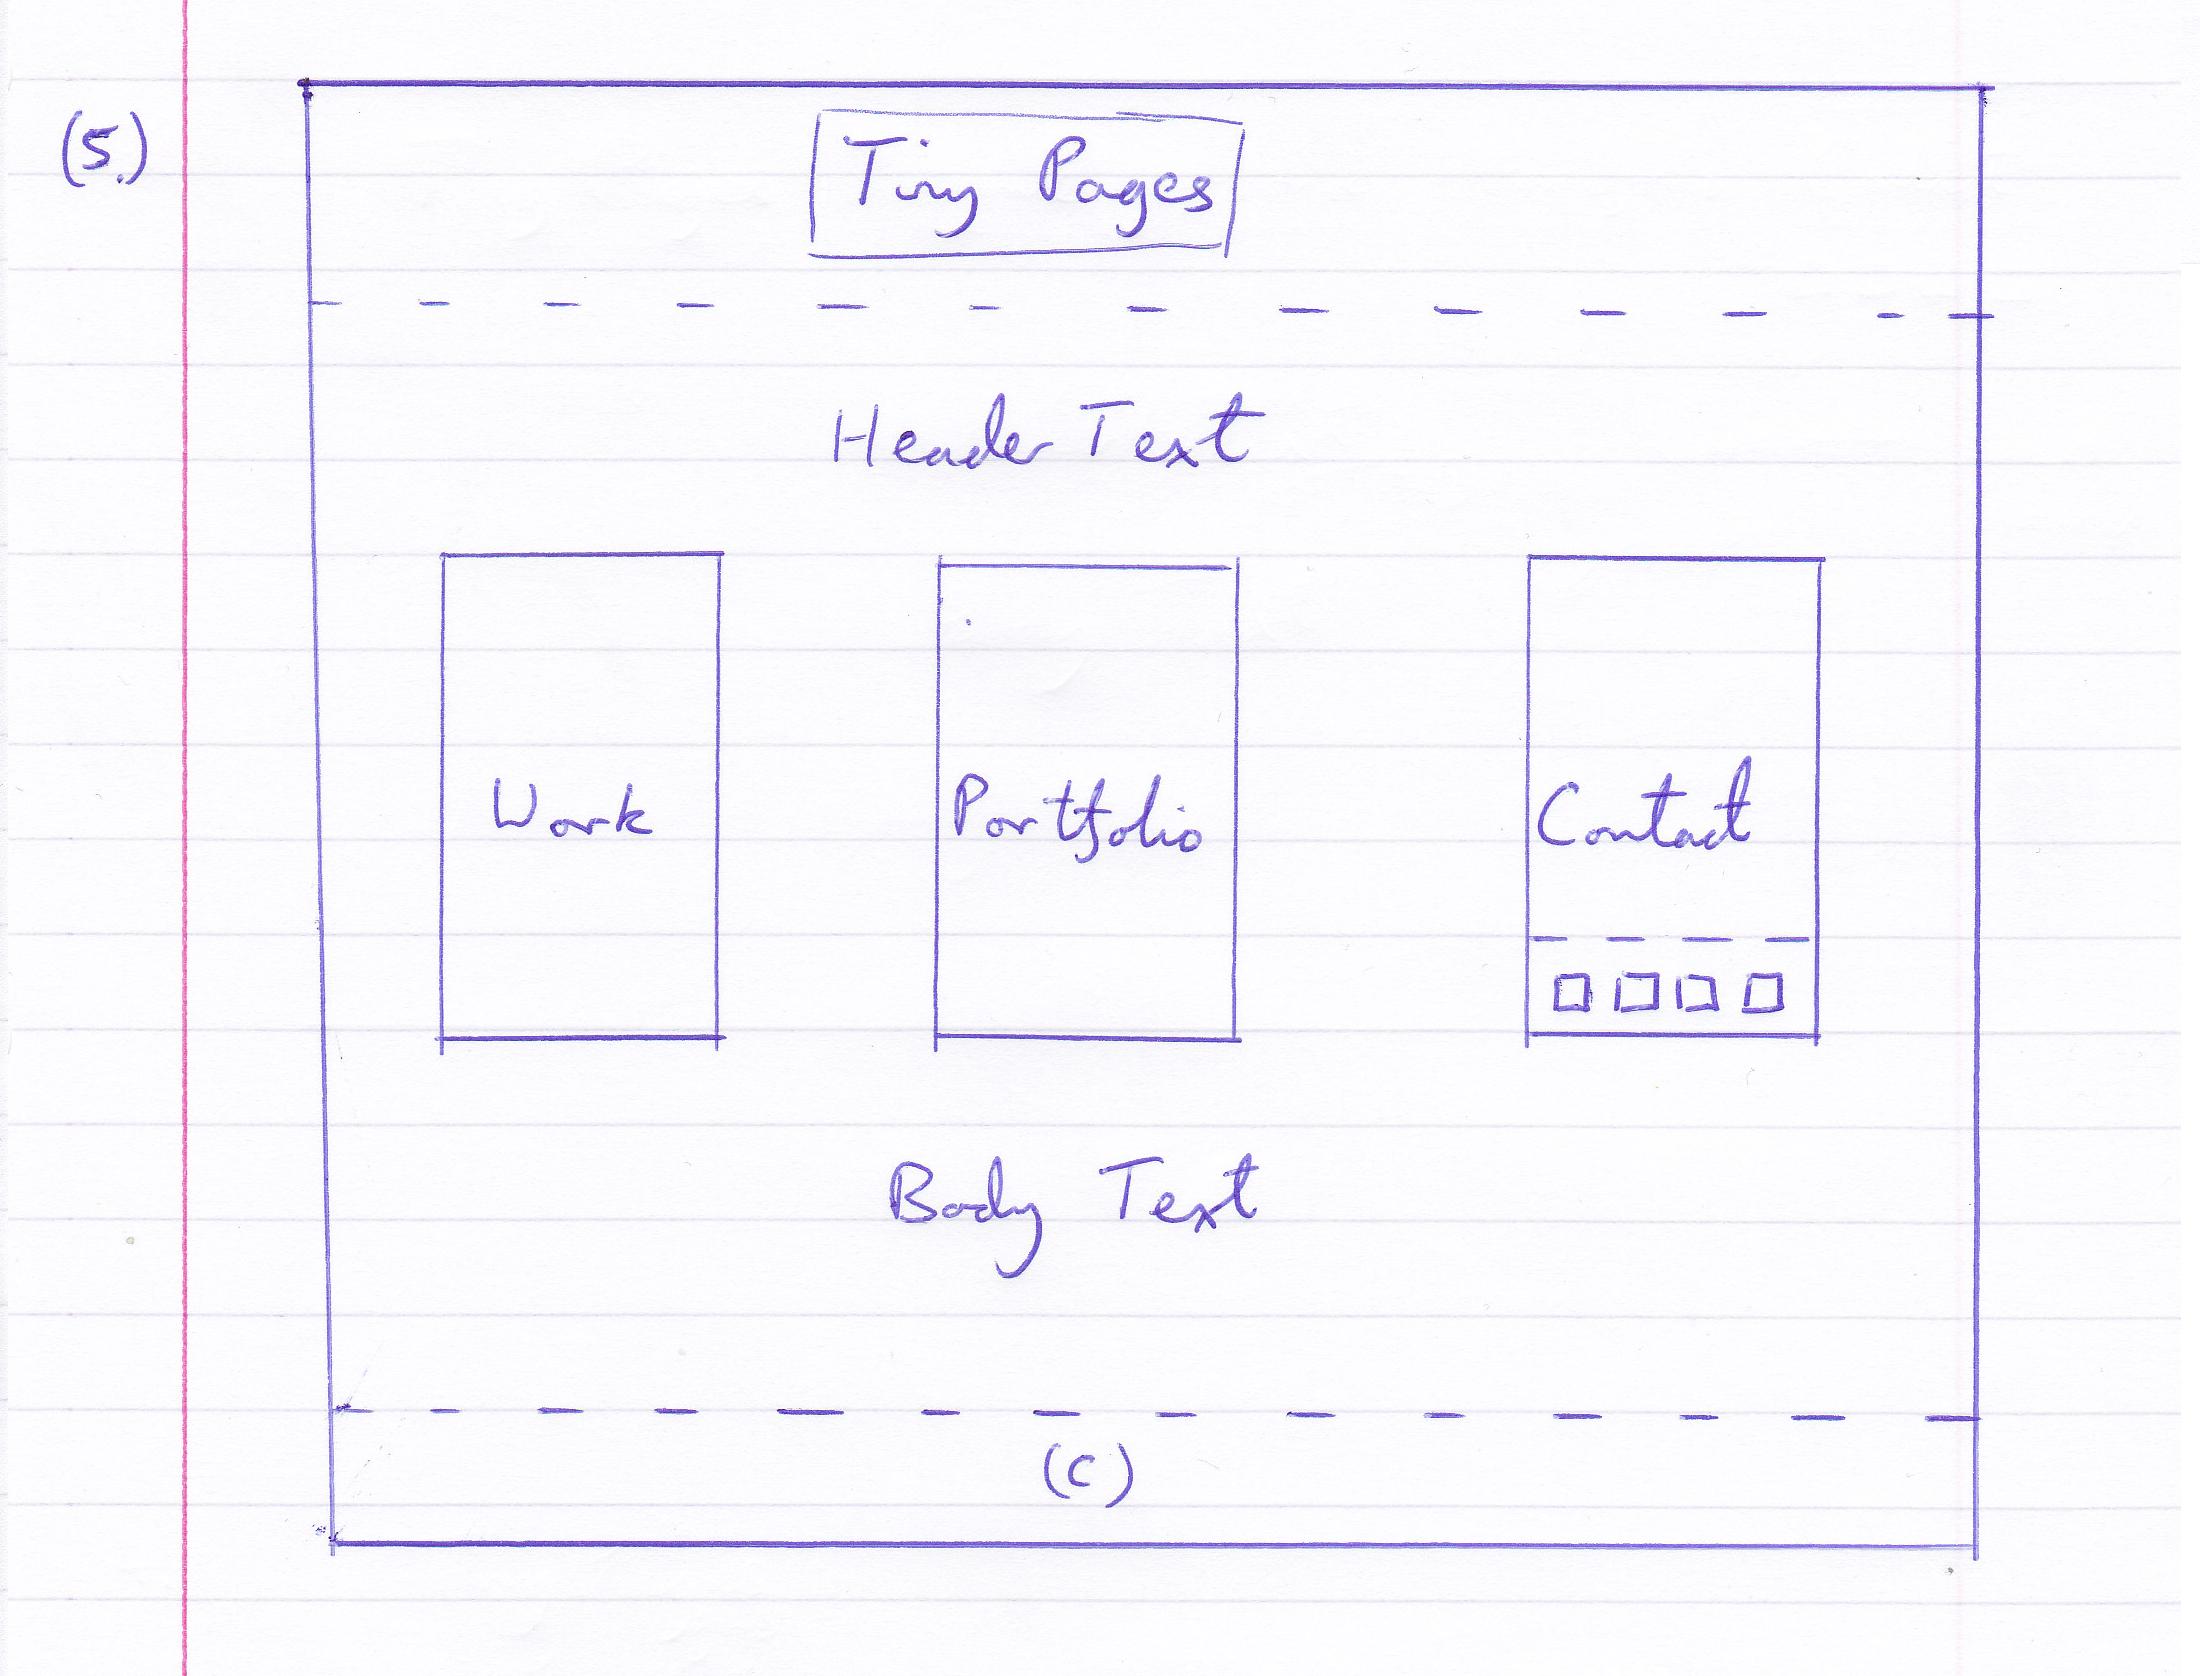 (5.)
Tiny Pages
Header Text
Work
Portfolio
Contact
Body Text
(C)